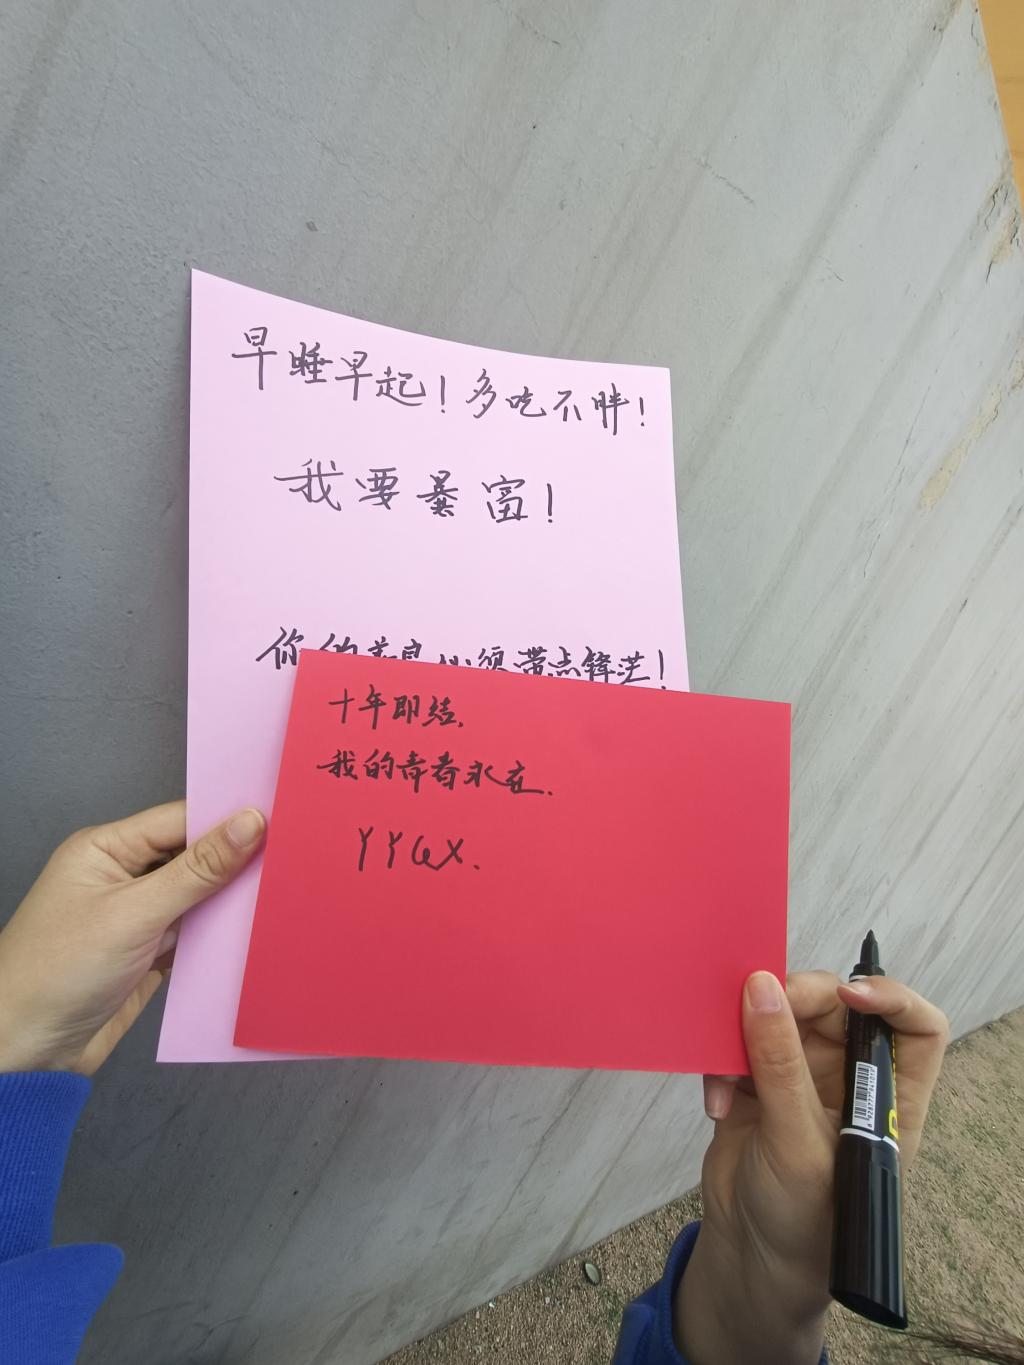 早睡早起！多吃不胖！
我要暴富！
你的善良必须带点锋芒！
十年即结.
我的青春永在.
YYQX.